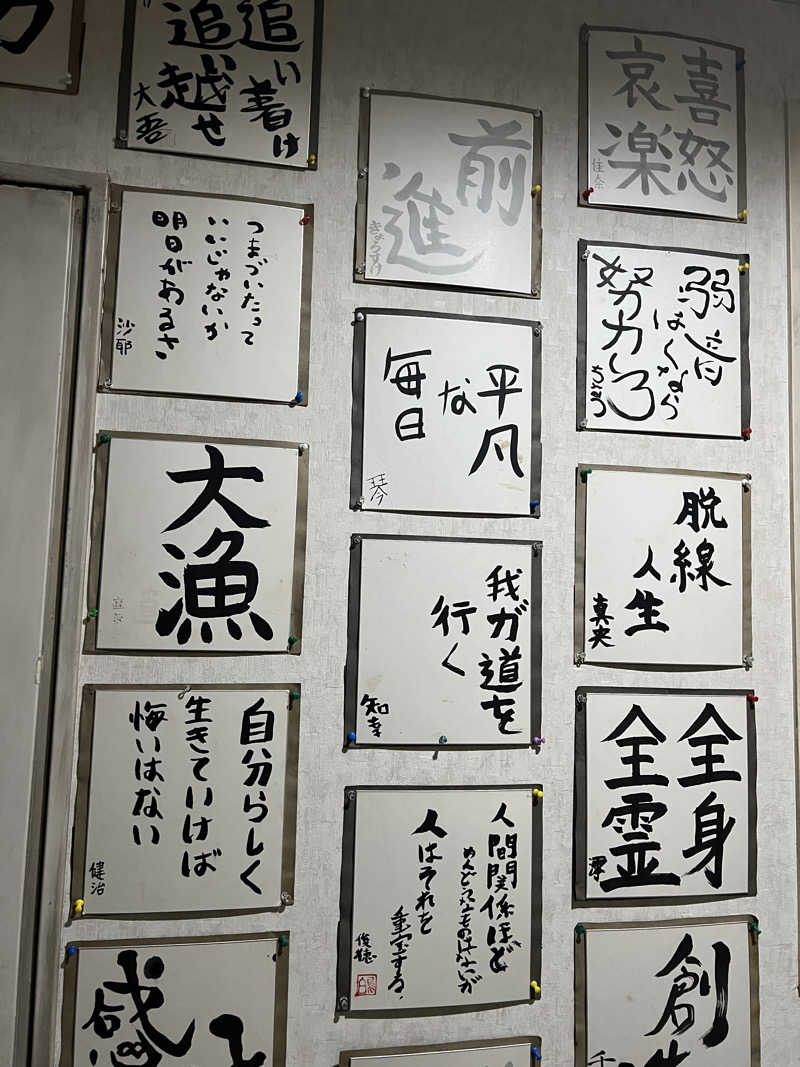 追い着け
追い越せ
大吾
つまづいたって
いいじゃないか
明日があるさ
沙耶
大
漁
自分らしく
生きていけば
悔いはない
健治
感
前
進
きょうすけ
平凡
な
毎日
琴
我が道を
行く
知幸
人間関係ほど
めんどうなものはないが
人はそれを
重宝する。
喜怒
哀楽
佳奈
弱音
はくなら
努力しろ
脱線
人生
真央
全身
全霊
創
千